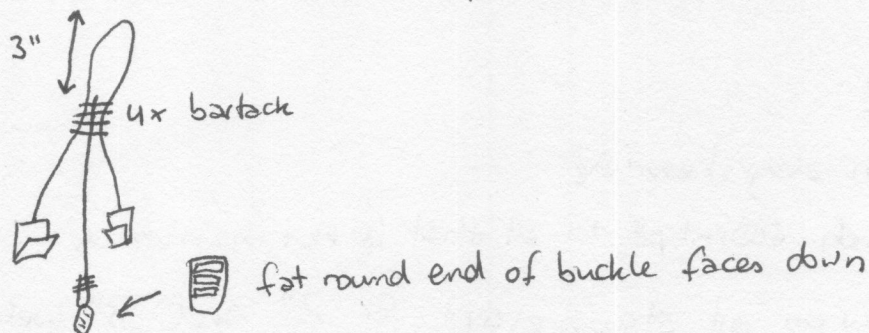 3"
4x bartack
fat round end of buckle faces down